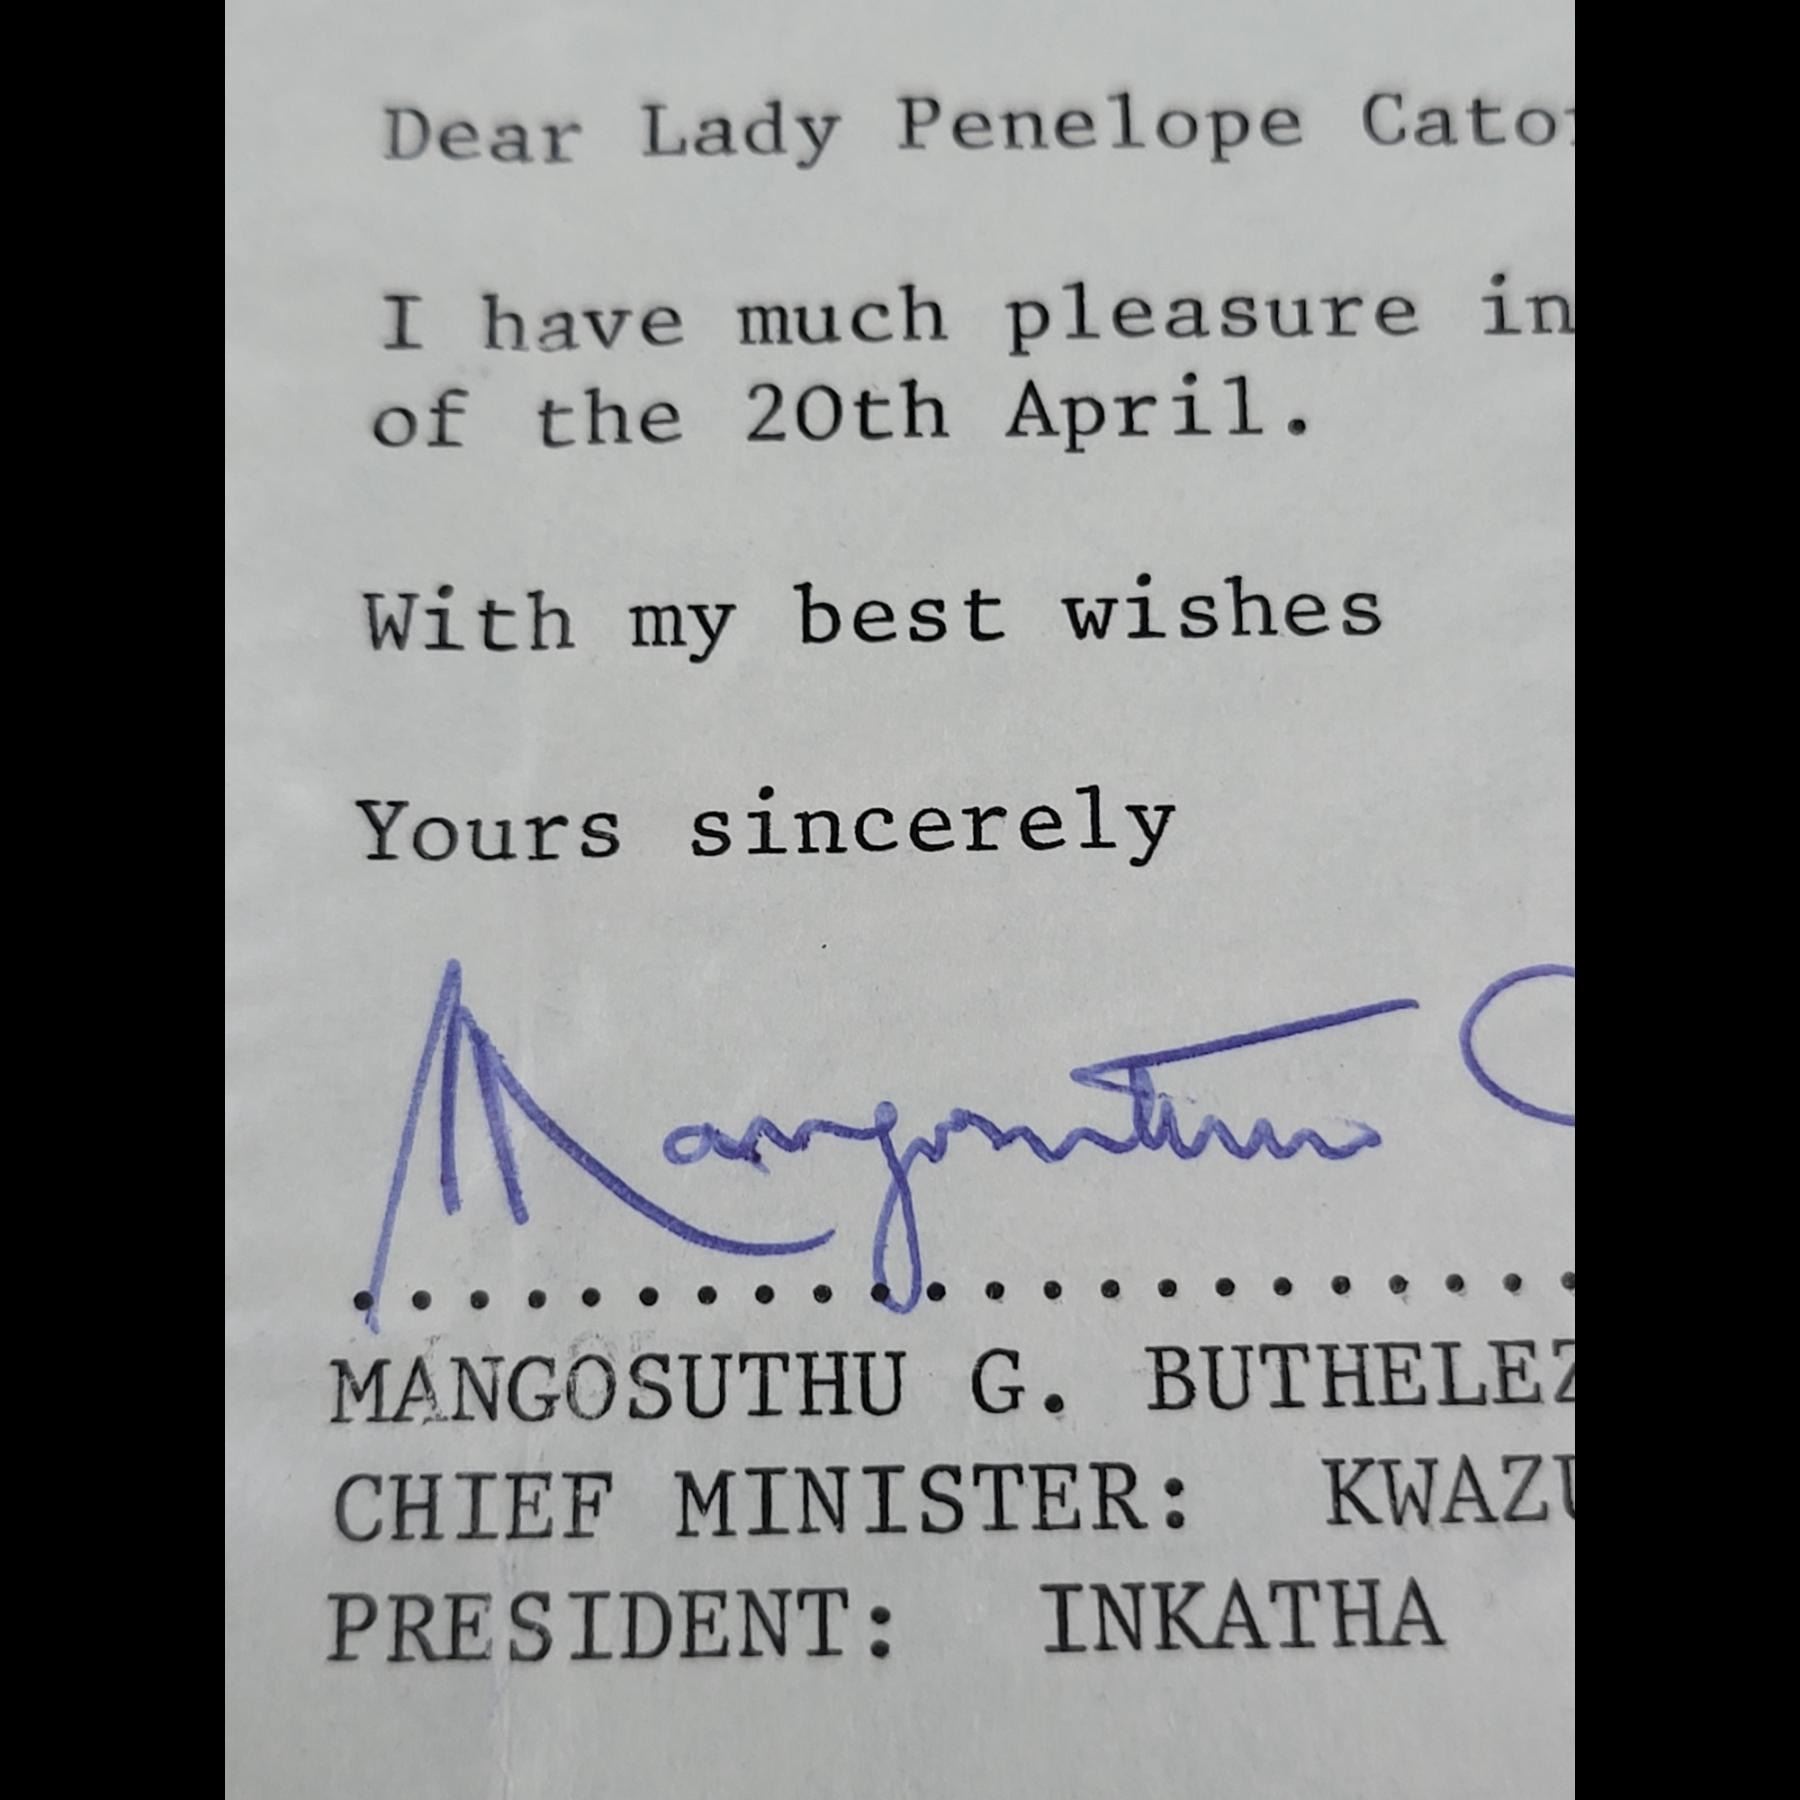 Dear Lady Penelope
I have much pleasure in
of the 20th April.
With my best wishes
Yours sincerely
Mangosuthu
MANGOSUTHU G.
CHIEF MINISTER:
PRESIDENT: INKATHA